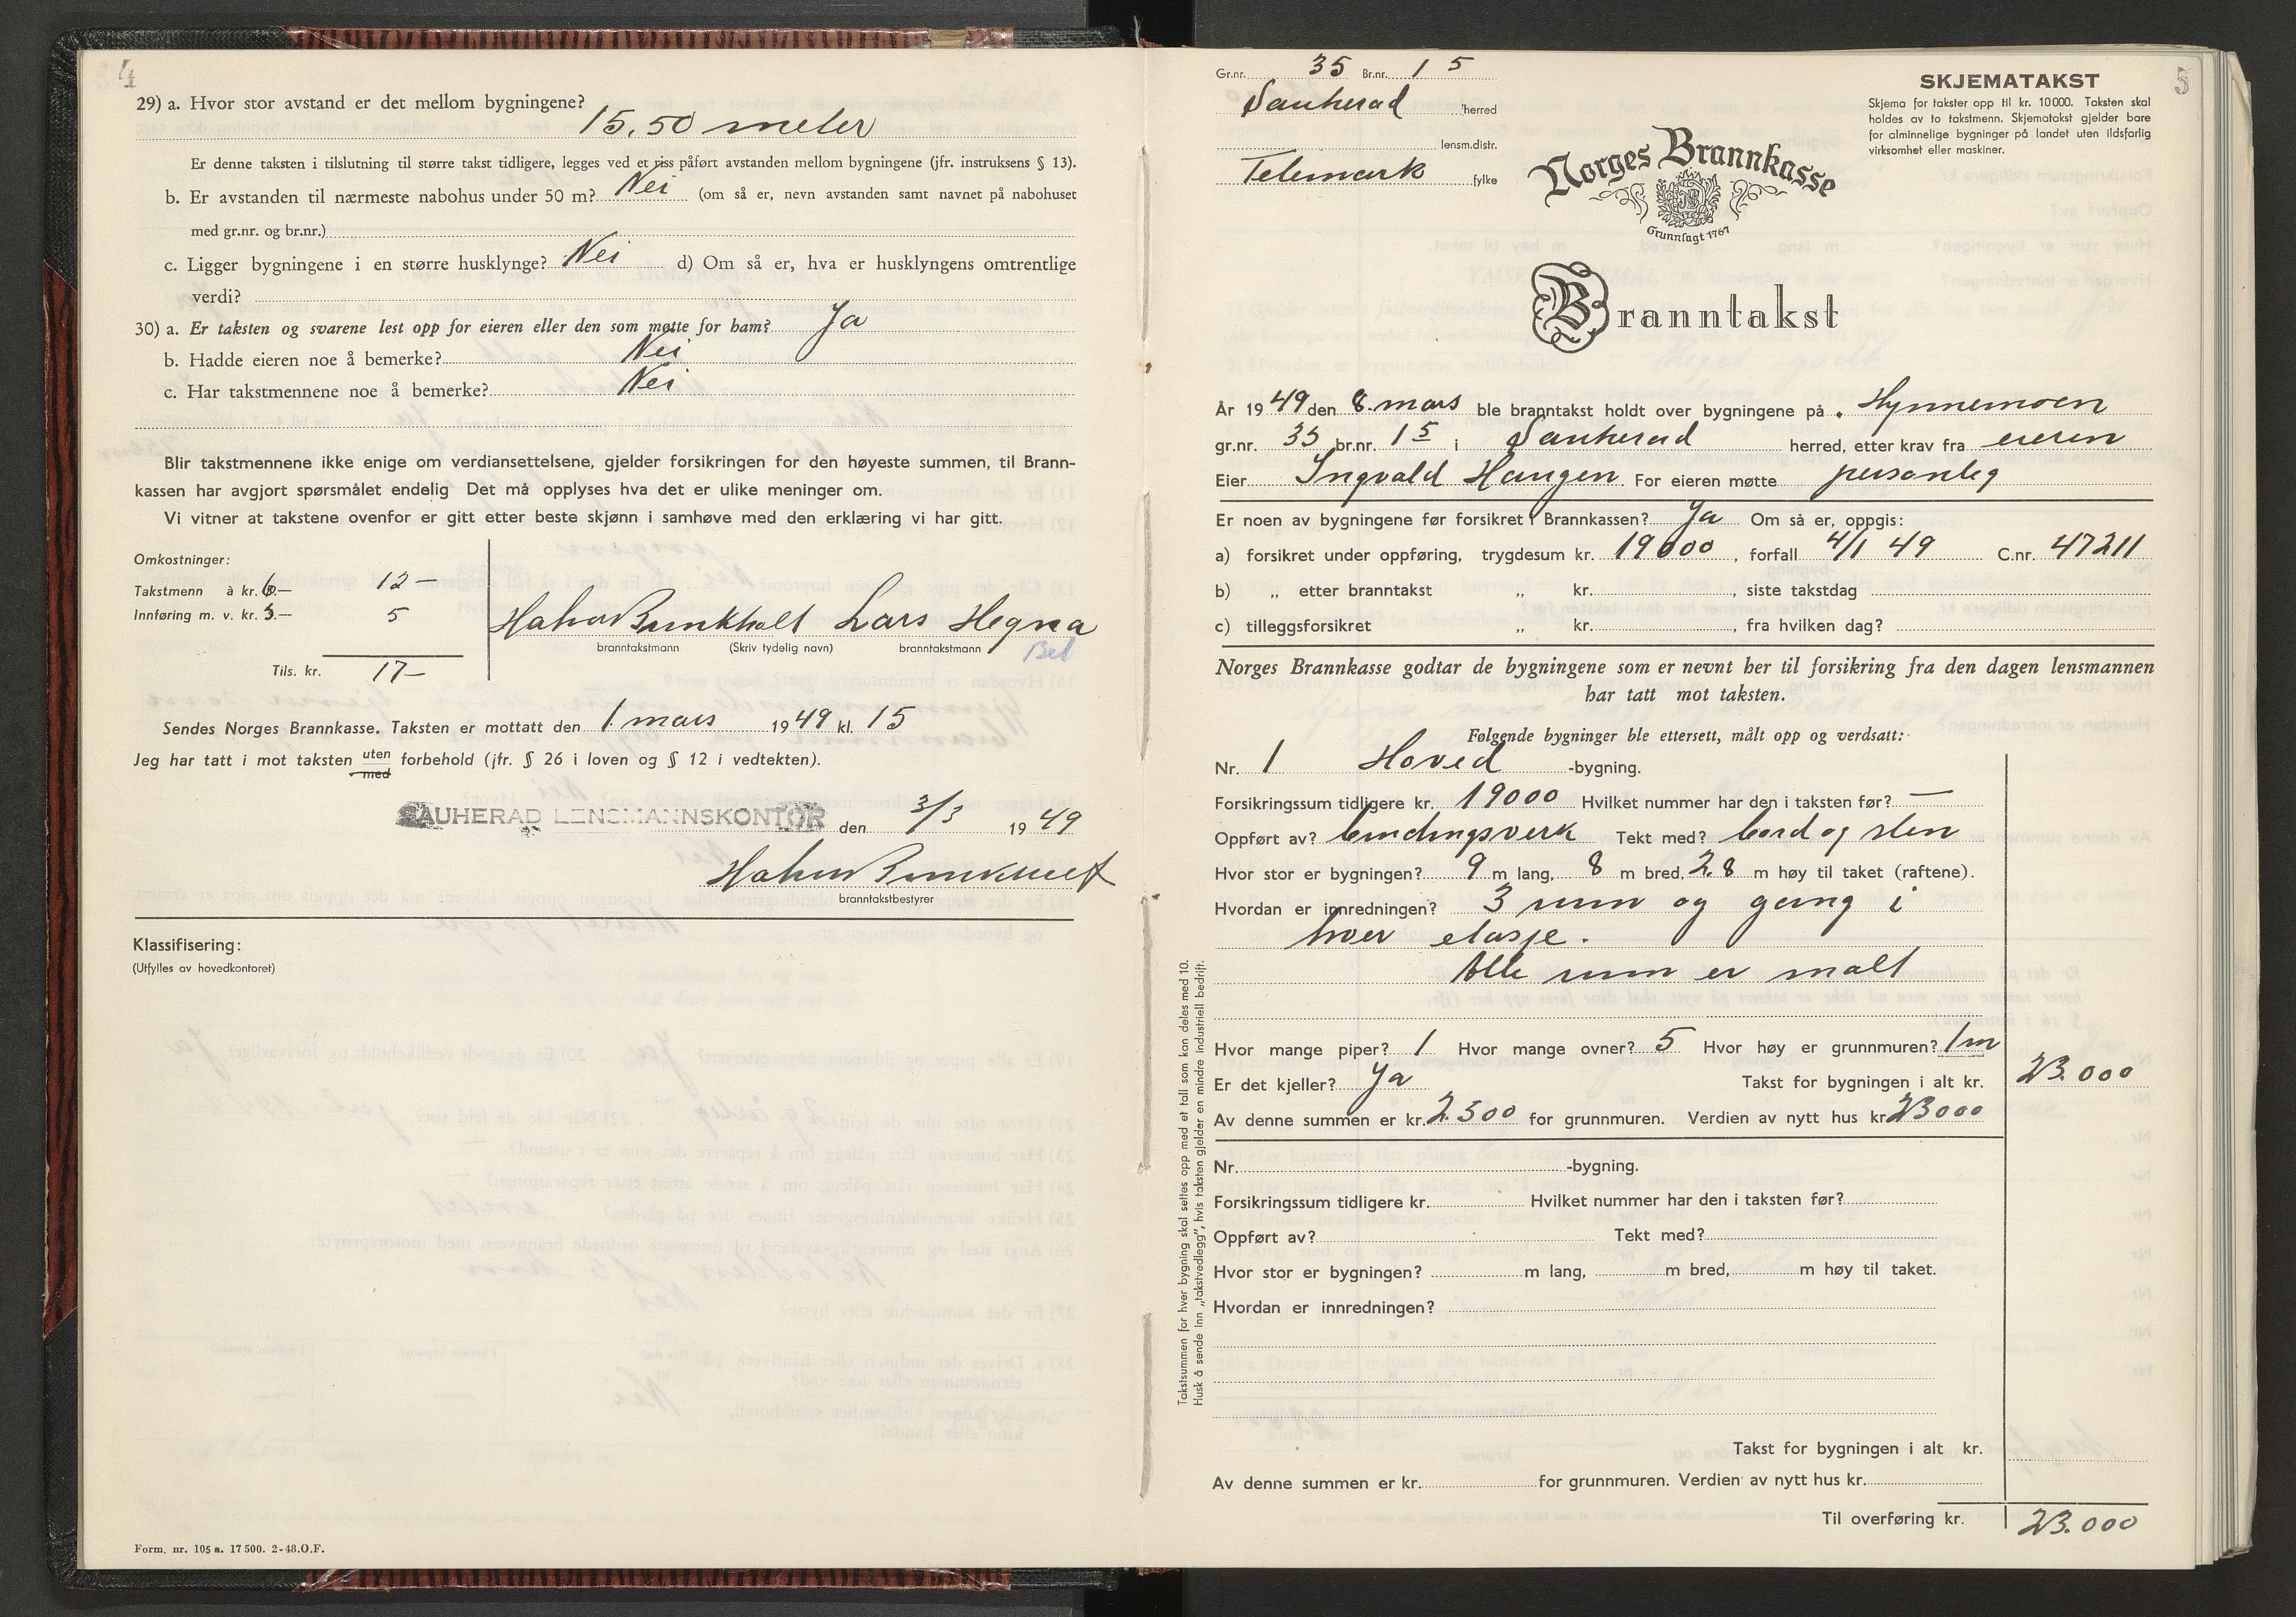 4
29) a. Hvor stor avstand er det mellom bygningene?
15,50 meter
Er denne taksten i tilslutning til større takst tidligere, legges ved et riss påført avstanden mellom bygningene (jfr. instruksens § 13).
b. Er avstanden til nærmeste nabohus under 50 m? Nei (om så er, nevn avstanden samt navnet på nabohuset
med gr.nr. og br.nr.)
c. Ligger bygningene i en større husklynge? Nei d) Om så er, hva er husklyngens omtrentlige
verdi?
30) a. Er taksten og svarene lest opp for eieren eller den som møtte for ham? Ja
b. Hadde eieren noe å bemerke? Nei
c. Har takstmennene noe å bemerke? Nei
Blir takstmennene ikke enige om verdiansettelsene, gjelder forsikringen for den høyeste summen, til Brann-
kassen har avgjort spørsmålet endelig Det må opplyses hva det er ulike meninger om.
Vi vitner at takstene ovenfor er gitt etter beste skjønn i samhøve med den erklæring vi har gitt.
Omkostninger:
Takstmenn à kr. 6.— 12—
Innføring m. v. kr. 5— 5
Tils. kr. 17—
Lars Hegna
branntakstmann (Skriv tydelig navn) branntakstmann
Sendes Norges Brannkasse. Taksten er mottatt den 1. mars 1949 kl. 15
Jeg har tatt i mot taksten uten
med forbehold (jfr. § 26 i loven og § 12 i vedtekten).
SAUHERAD LENSMANNSKONTOR den 3/3 1949
branntakstbestyrer
Klassifisering:
(Utfylles av hovedkontoret)
Form. nr. 105 a. 17 500. 2-48. O.F.
5
Gr.nr. 35 Br.nr. 15
Sauherad herred
lensm.distr.
Telemark fylke
SKJEMATAKST
Skjema for takster opp til kr. 10000. Taksten skal
holdes av to takstmenn. Skjematakst gjelder bare
for alminnelige bygninger på landet uten ildsfarlig
virksomhet eller maskiner.
Norges Brannkasse
Grunnlagt 1767
Branntakst
År 1949 den 8. mars ble branntakst holdt over bygningene på Hynnemoen
gr.nr. 35 br.nr. 15 i Sauherad herred, etter krav fra eieren
Eier Ingvald Haugen. For eieren møtte personleg
Er noen av bygningene før forsikret i Brannkassen? Ja Om så er, oppgis:
a) forsikret under oppføring, trygdesum kr. 19000, forfall 4/1 49 C.nr. 47211
b) „ etter branntakst „ kr. , siste takstdag
c) tilleggsforsikret „ kr. , fra hvilken dag?
Norges Brannkasse godtar de bygningene som er nevnt her til forsikring fra den dagen lensmannen
har tatt mot taksten.
Følgende bygninger ble ettersett, målt opp og verdsatt:
Nr. 1 Hoved -bygning.
Forsikringssum tidligere kr. 19000 Hvilket nummer har den i taksten før? —
Oppført av? bindingsverk Tekt med? bord og sten
Hvor stor er bygningen? 9 m lang, 8 m bred, 2,8 m høy til taket (raftene).
Hvordan er innredningen? 3 rum og gang i
hver etasje.
Alle rum er malt
Hvor mange piper? 1 Hvor mange ovner? 5 Hvor høy er grunnmuren? 1 m
Er det kjeller? Ja Takst for bygningen i alt kr. 23.000
Av denne summen er kr. 2.500 for grunnmuren. Verdien av nytt hus kr. 23000
Nr. -bygning.
Forsikringssum tidligere kr. Hvilket nummer har den i taksten før?
Oppført av? Tekt med?
Hvor stor er bygningen? m lang, m bred, m høy til taket.
Hvordan er innredningen?
Takst for bygningen i alt kr.
Av denne summen er kr. for grunnmuren. Verdien av nytt hus kr.
Til overføring kr. 23.000
Takstsummen for hver bygning skal settes opp med et tall som kan deles med 10.
Husk å sende inn „takstvedlegg”, hvis taksten gjelder en mindre industriell bedrift.